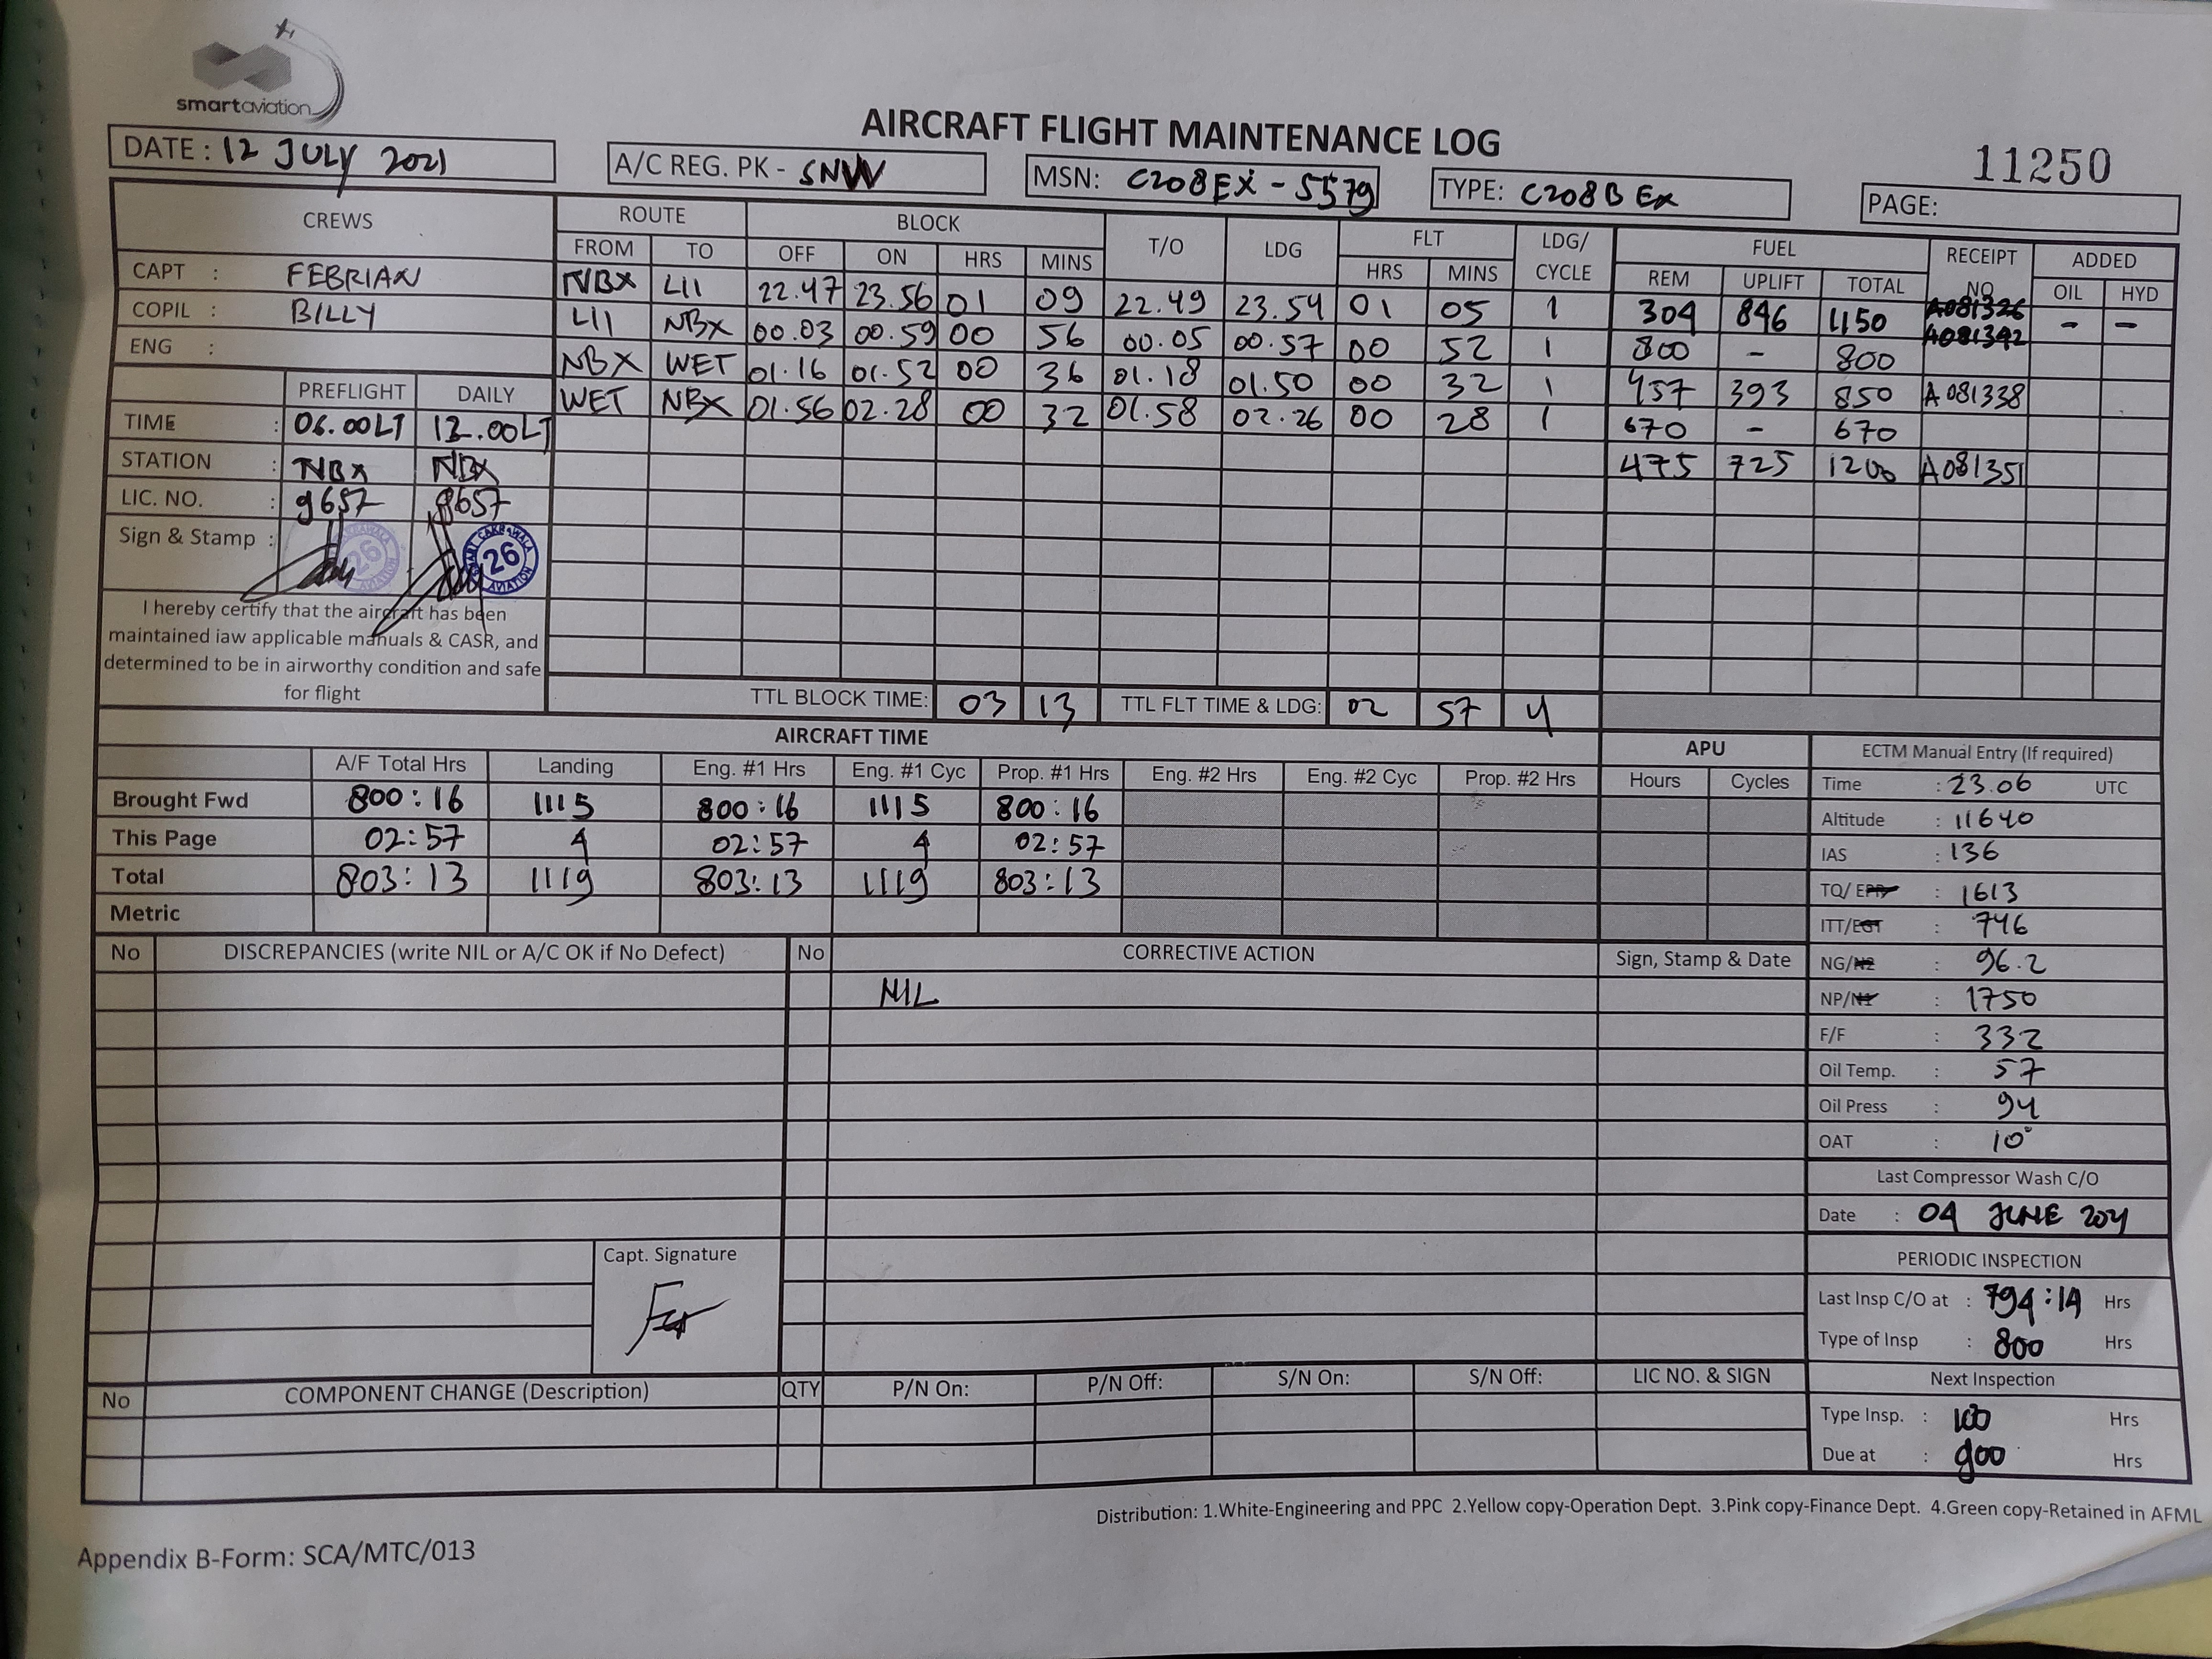 smartaviation
AIRCRAFT FLIGHT MAINTENANCE LOG
11250
DATE : 12 JULY 2021
A/C REG. PK - SNW
MSN: C208EX - 5579
TYPE: C208B EX
PAGE:
CREWS ROUTE BLOCK T/O LDG FLT LDG/ CYCLE FUEL RECEIPT NO ADDED
FROM TO OFF ON HRS MINS HRS MINS REM UPLIFT TOTAL OIL HYD
CAPT : FEBRIAN
COPIL : BILLY
ENG :
NBX LII 22.47 23.56 01 09 22.49 23.54 01 05 1 304 846 1150 A081326 A081342 - -
LII NBX 00.03 00.59 00 56 00.05 00.57 00 52 1 800 - 800
NBX WET 01.16 01.52 00 36 01.18 01.50 00 32 1 457 393 850 A081338
WET NBX 01.56 02.28 00 32 01.58 02.26 00 28 1 670 - 670
475 725 1200 A081351
PREFLIGHT DAILY
TIME : 06.00LT 12.00LT
STATION : NBX NBX
LIC. NO. : 9657 9657
Sign & Stamp :
26
CAKRAWALA
26
AVIATION
I hereby certify that the aircraft has been
maintained iaw applicable manuals & CASR, and
determined to be in airworthy condition and safe
for flight
TTL BLOCK TIME: 03 13 TTL FLT TIME & LDG: 02 57 4
AIRCRAFT TIME APU
A/F Total Hrs Landing Eng. #1 Hrs Eng. #1 Cyc Prop. #1 Hrs Eng. #2 Hrs Eng. #2 Cyc Prop. #2 Hrs Hours Cycles
Brought Fwd 800:16 1115 800:16 1115 800:16
This Page 02:57 4 02:57 4 02:57
Total 803:13 1119 803:13 1119 803:13
Metric
ECTM Manual Entry (If required)
Time : 23.06 UTC
Altitude : 11640
IAS : 136
TQ/ EPR : 1613
ITT/EGT : 746
NG/N2 : 96.2
NP/N1 : 1750
F/F : 332
Oil Temp. : 57
Oil Press : 94
OAT : 10°
Last Compressor Wash C/O
Date : 04 JUNE 2021
PERIODIC INSPECTION
Last Insp C/O at : 794:14 Hrs
Type of Insp : 800 Hrs
Next Inspection
Type Insp. : 100 Hrs
Due at : 900 Hrs
No DISCREPANCIES (write NIL or A/C OK if No Defect) No CORRECTIVE ACTION Sign, Stamp & Date
NIL
Capt. Signature
No COMPONENT CHANGE (Description) QTY P/N On: P/N Off: S/N On: S/N Off: LIC NO. & SIGN
Distribution: 1.White-Engineering and PPC 2.Yellow copy-Operation Dept. 3.Pink copy-Finance Dept. 4.Green copy-Retained in AFML
Appendix B-Form: SCA/MTC/013